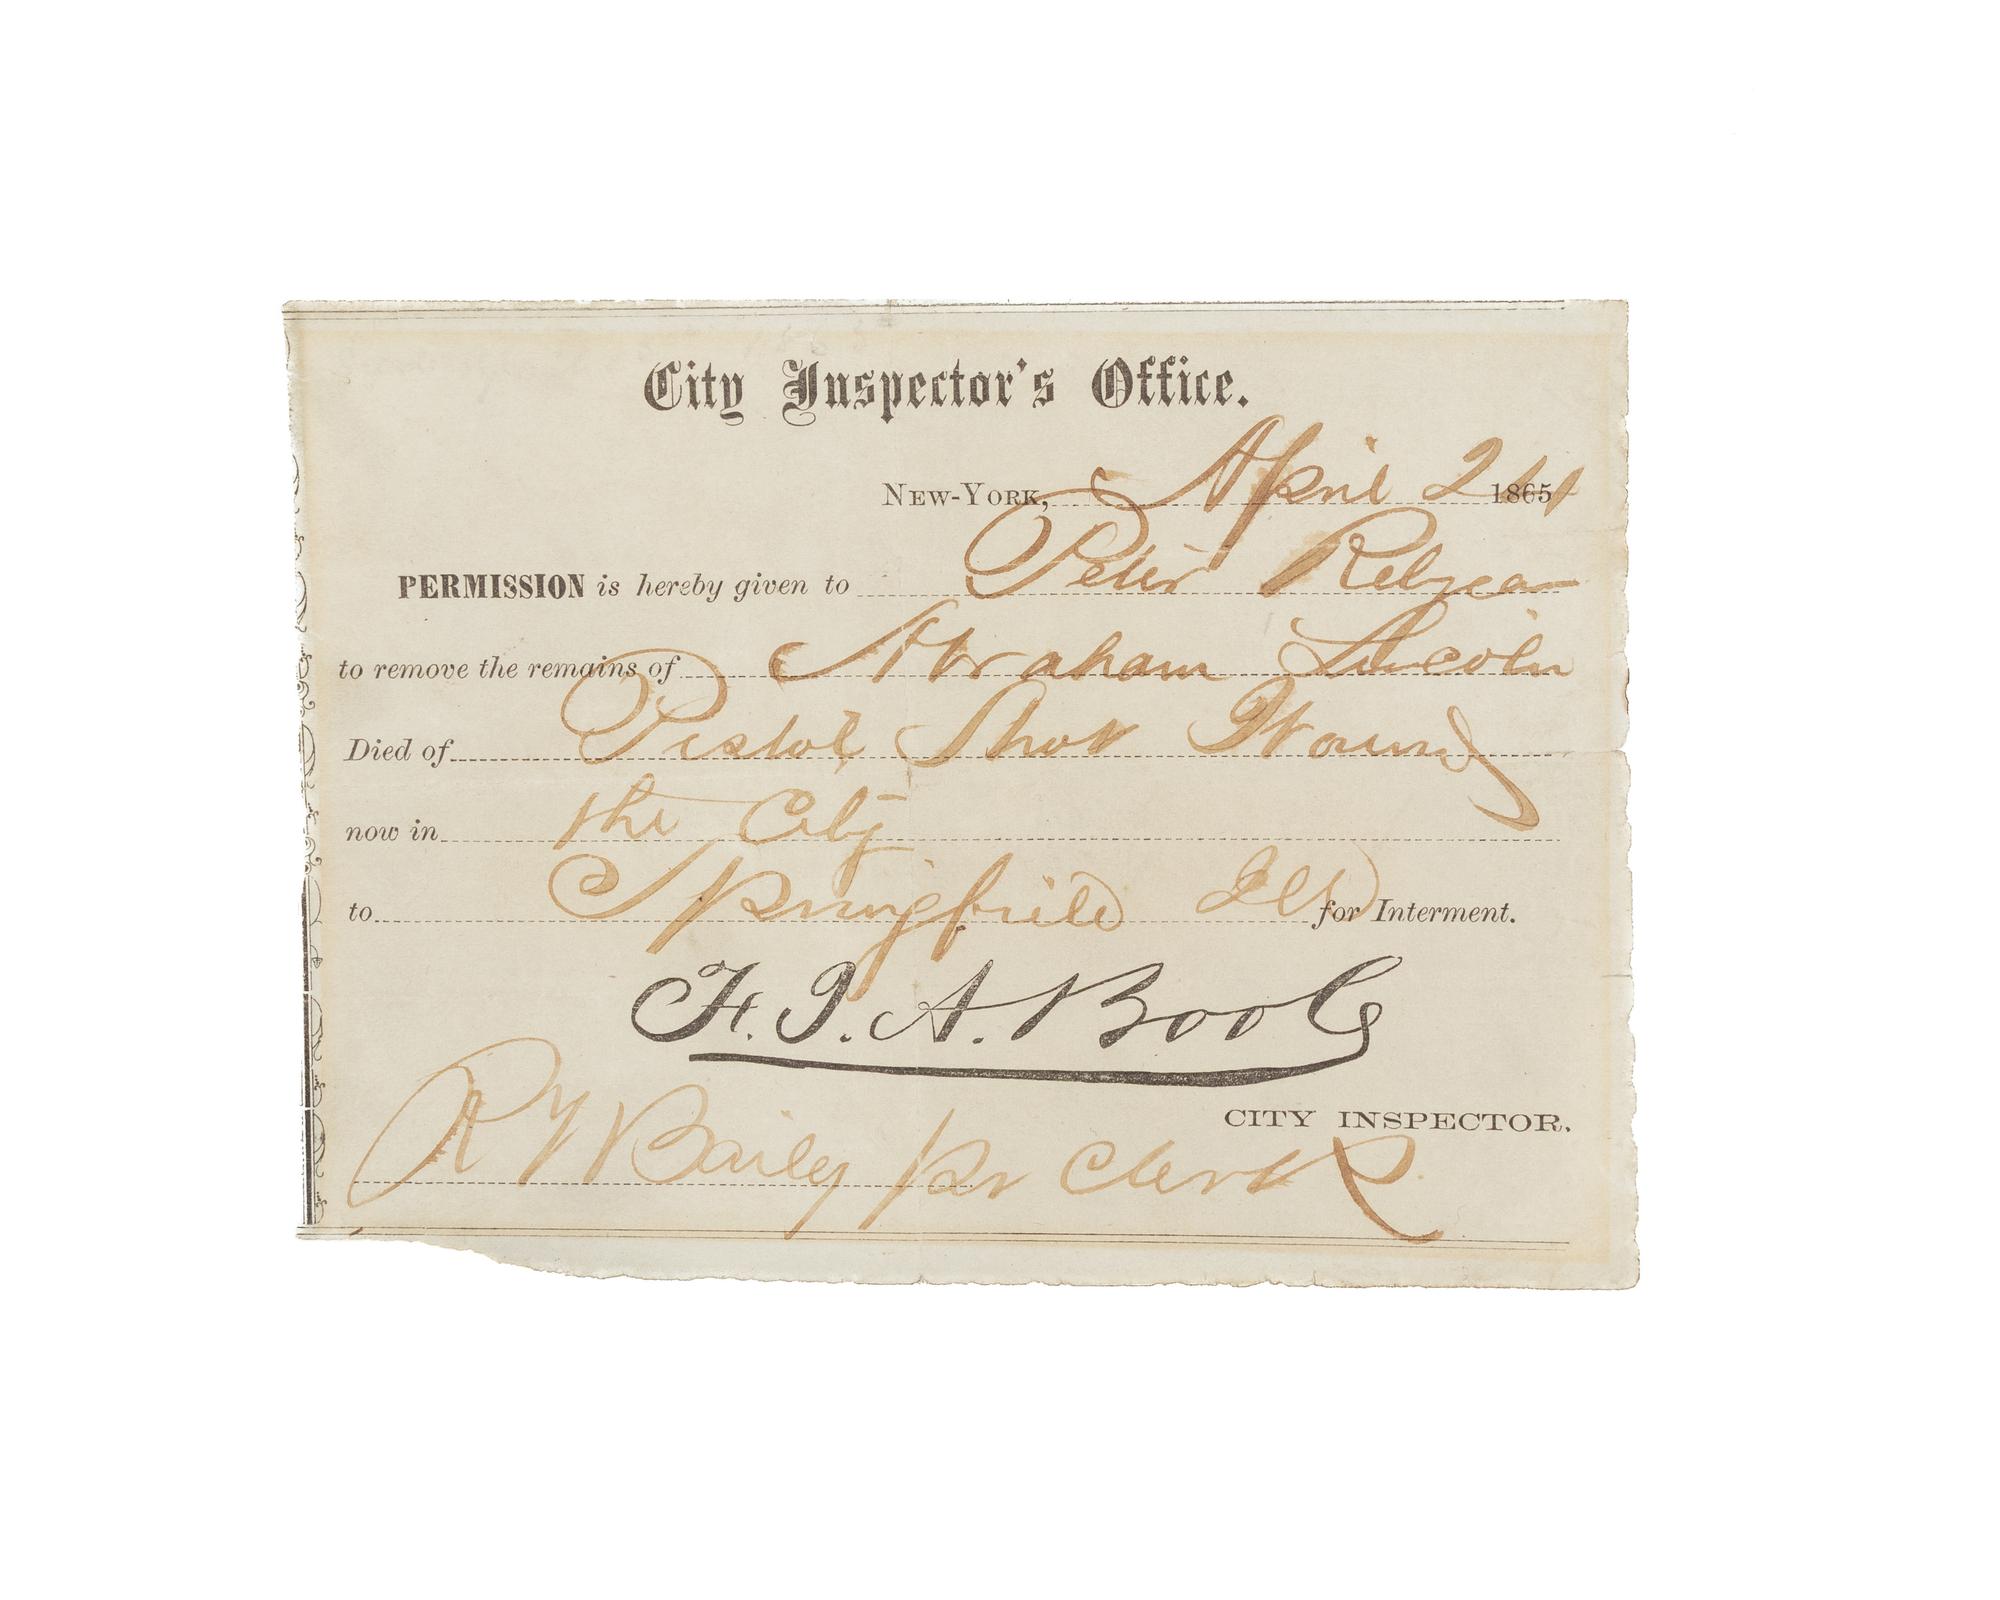 City Inspector's Office.
New-York, April 24 1865
PERMISSION is hereby given to Peter Relyea
to remove the remains of Abraham Lincoln
Died of Pistol Shot Wound
now in the City
to Springfield Ills for Interment.
F. I. A. Boole
CITY INSPECTOR.
R Y Baily pr Clerk